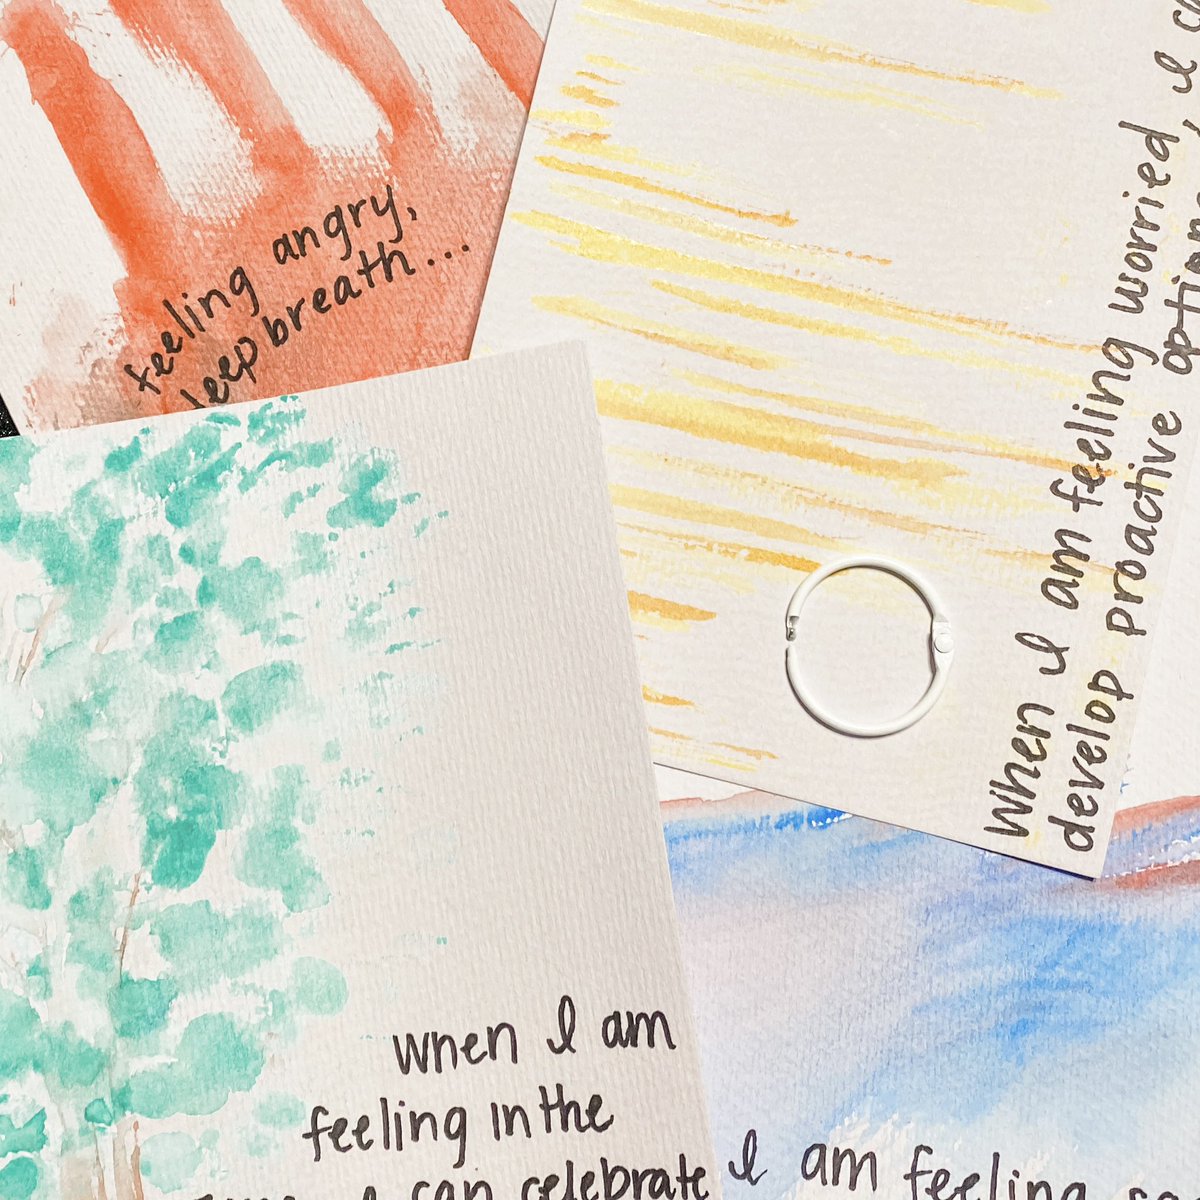 feeling angry,
deep breath...
When I am feeling worried, I
develop proactive options,
when I am
feeling in the
I can celebrate
I am feeling